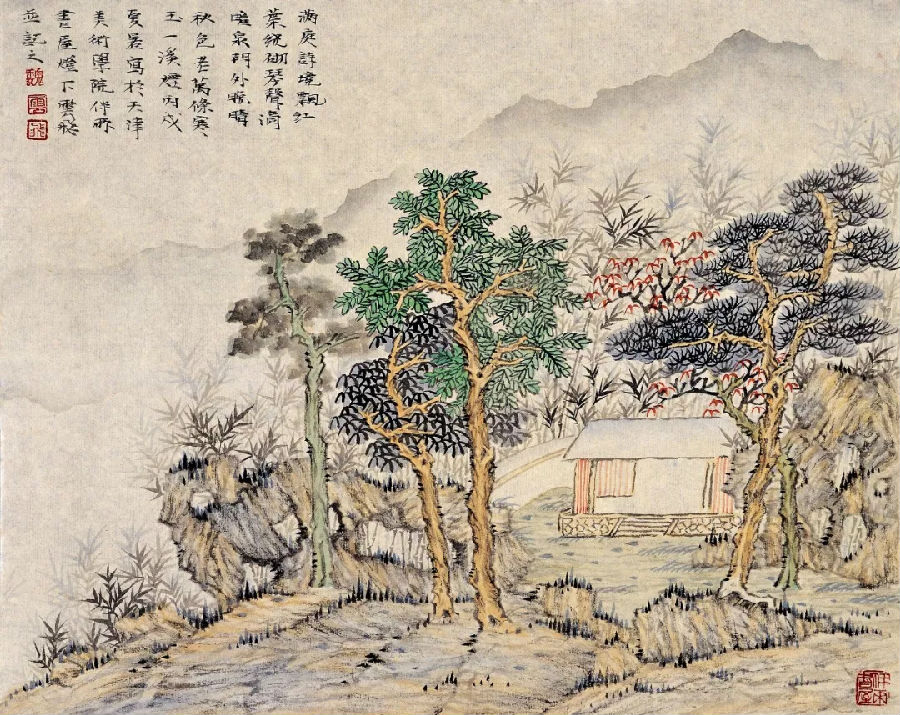 滿庭詩境飄紅
葉繞砌琴聲滴
暗泉門外晚晴
秋色老萬條寒
玉一溪煙丙戌
夏暑寫於天津
美術學院伴雨
書屋燈下雲飛
並記之
魏
雲
飛
伴雨書屋